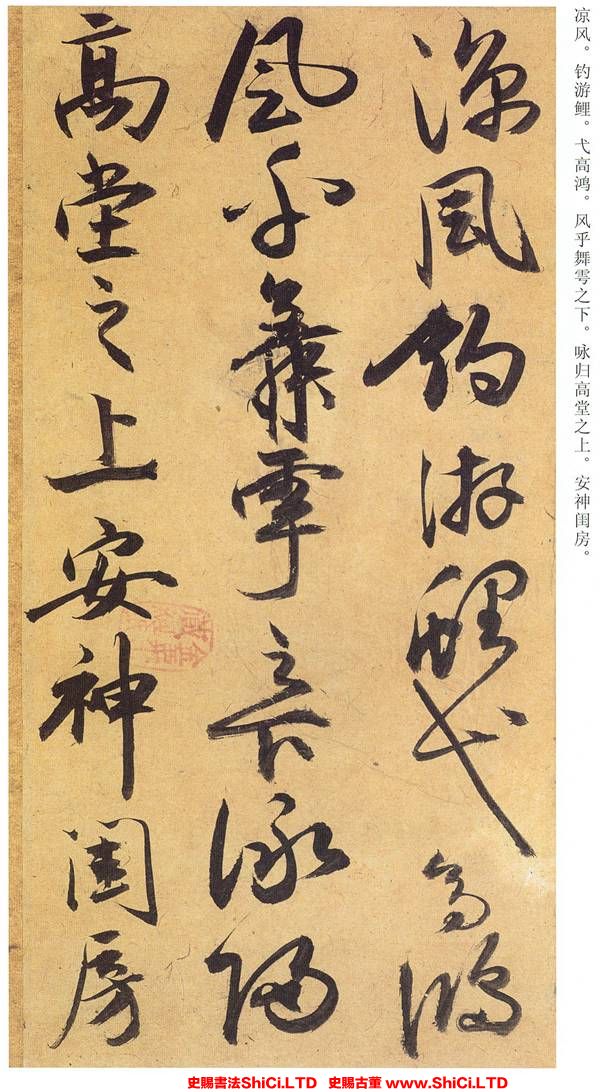 凉风。钓游鲤。弋高鸿。风乎舞雩之下。咏归高堂之上。安神闺房。
涼風釣游鯉弋高鴻
風乎舞雩之下詠歸
高堂之上安神閨房
史賜書法ShiCi.LTD 史賜古董 ShiCi.LTD